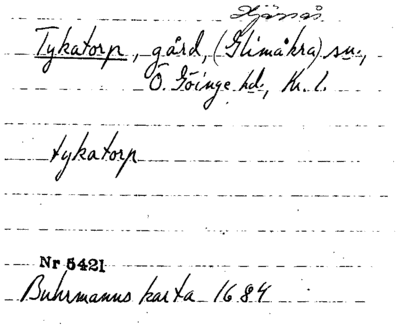 Hjärsås
Tykatorp, gård, (Glimåkra) sn.,
Ö. Göinge hd., Kr. l.
tykatorp
Nr 5421
Buhrmanns karta 1684